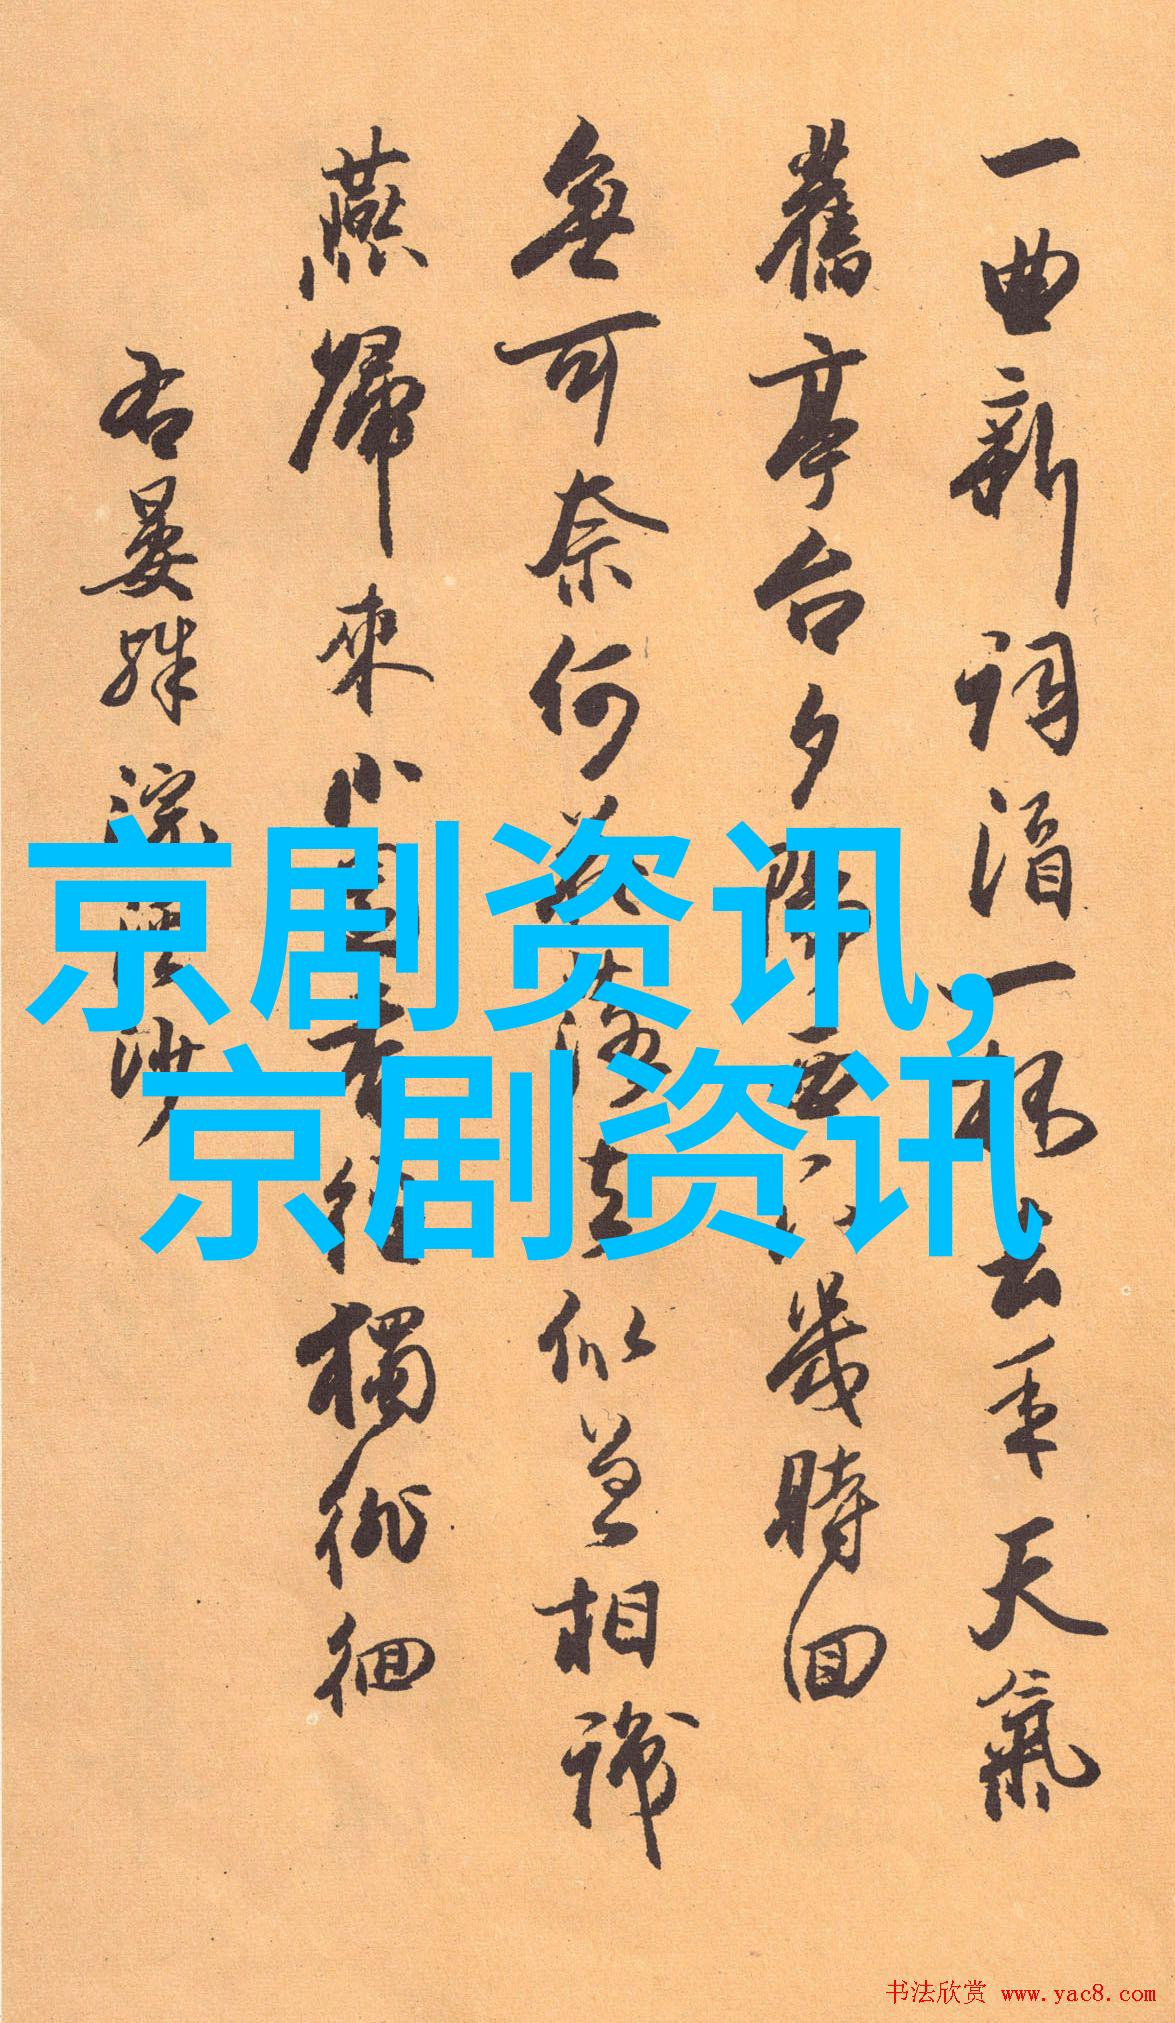 一曲新詞酒一杯去年天氣
舊亭台夕陽西下幾時回
無可奈何花落去似曾相識
燕歸來小園香徑獨徘徊
右晏殊浣溪沙
京剧资讯,
京剧资讯
书法欣赏 www.yac8.com